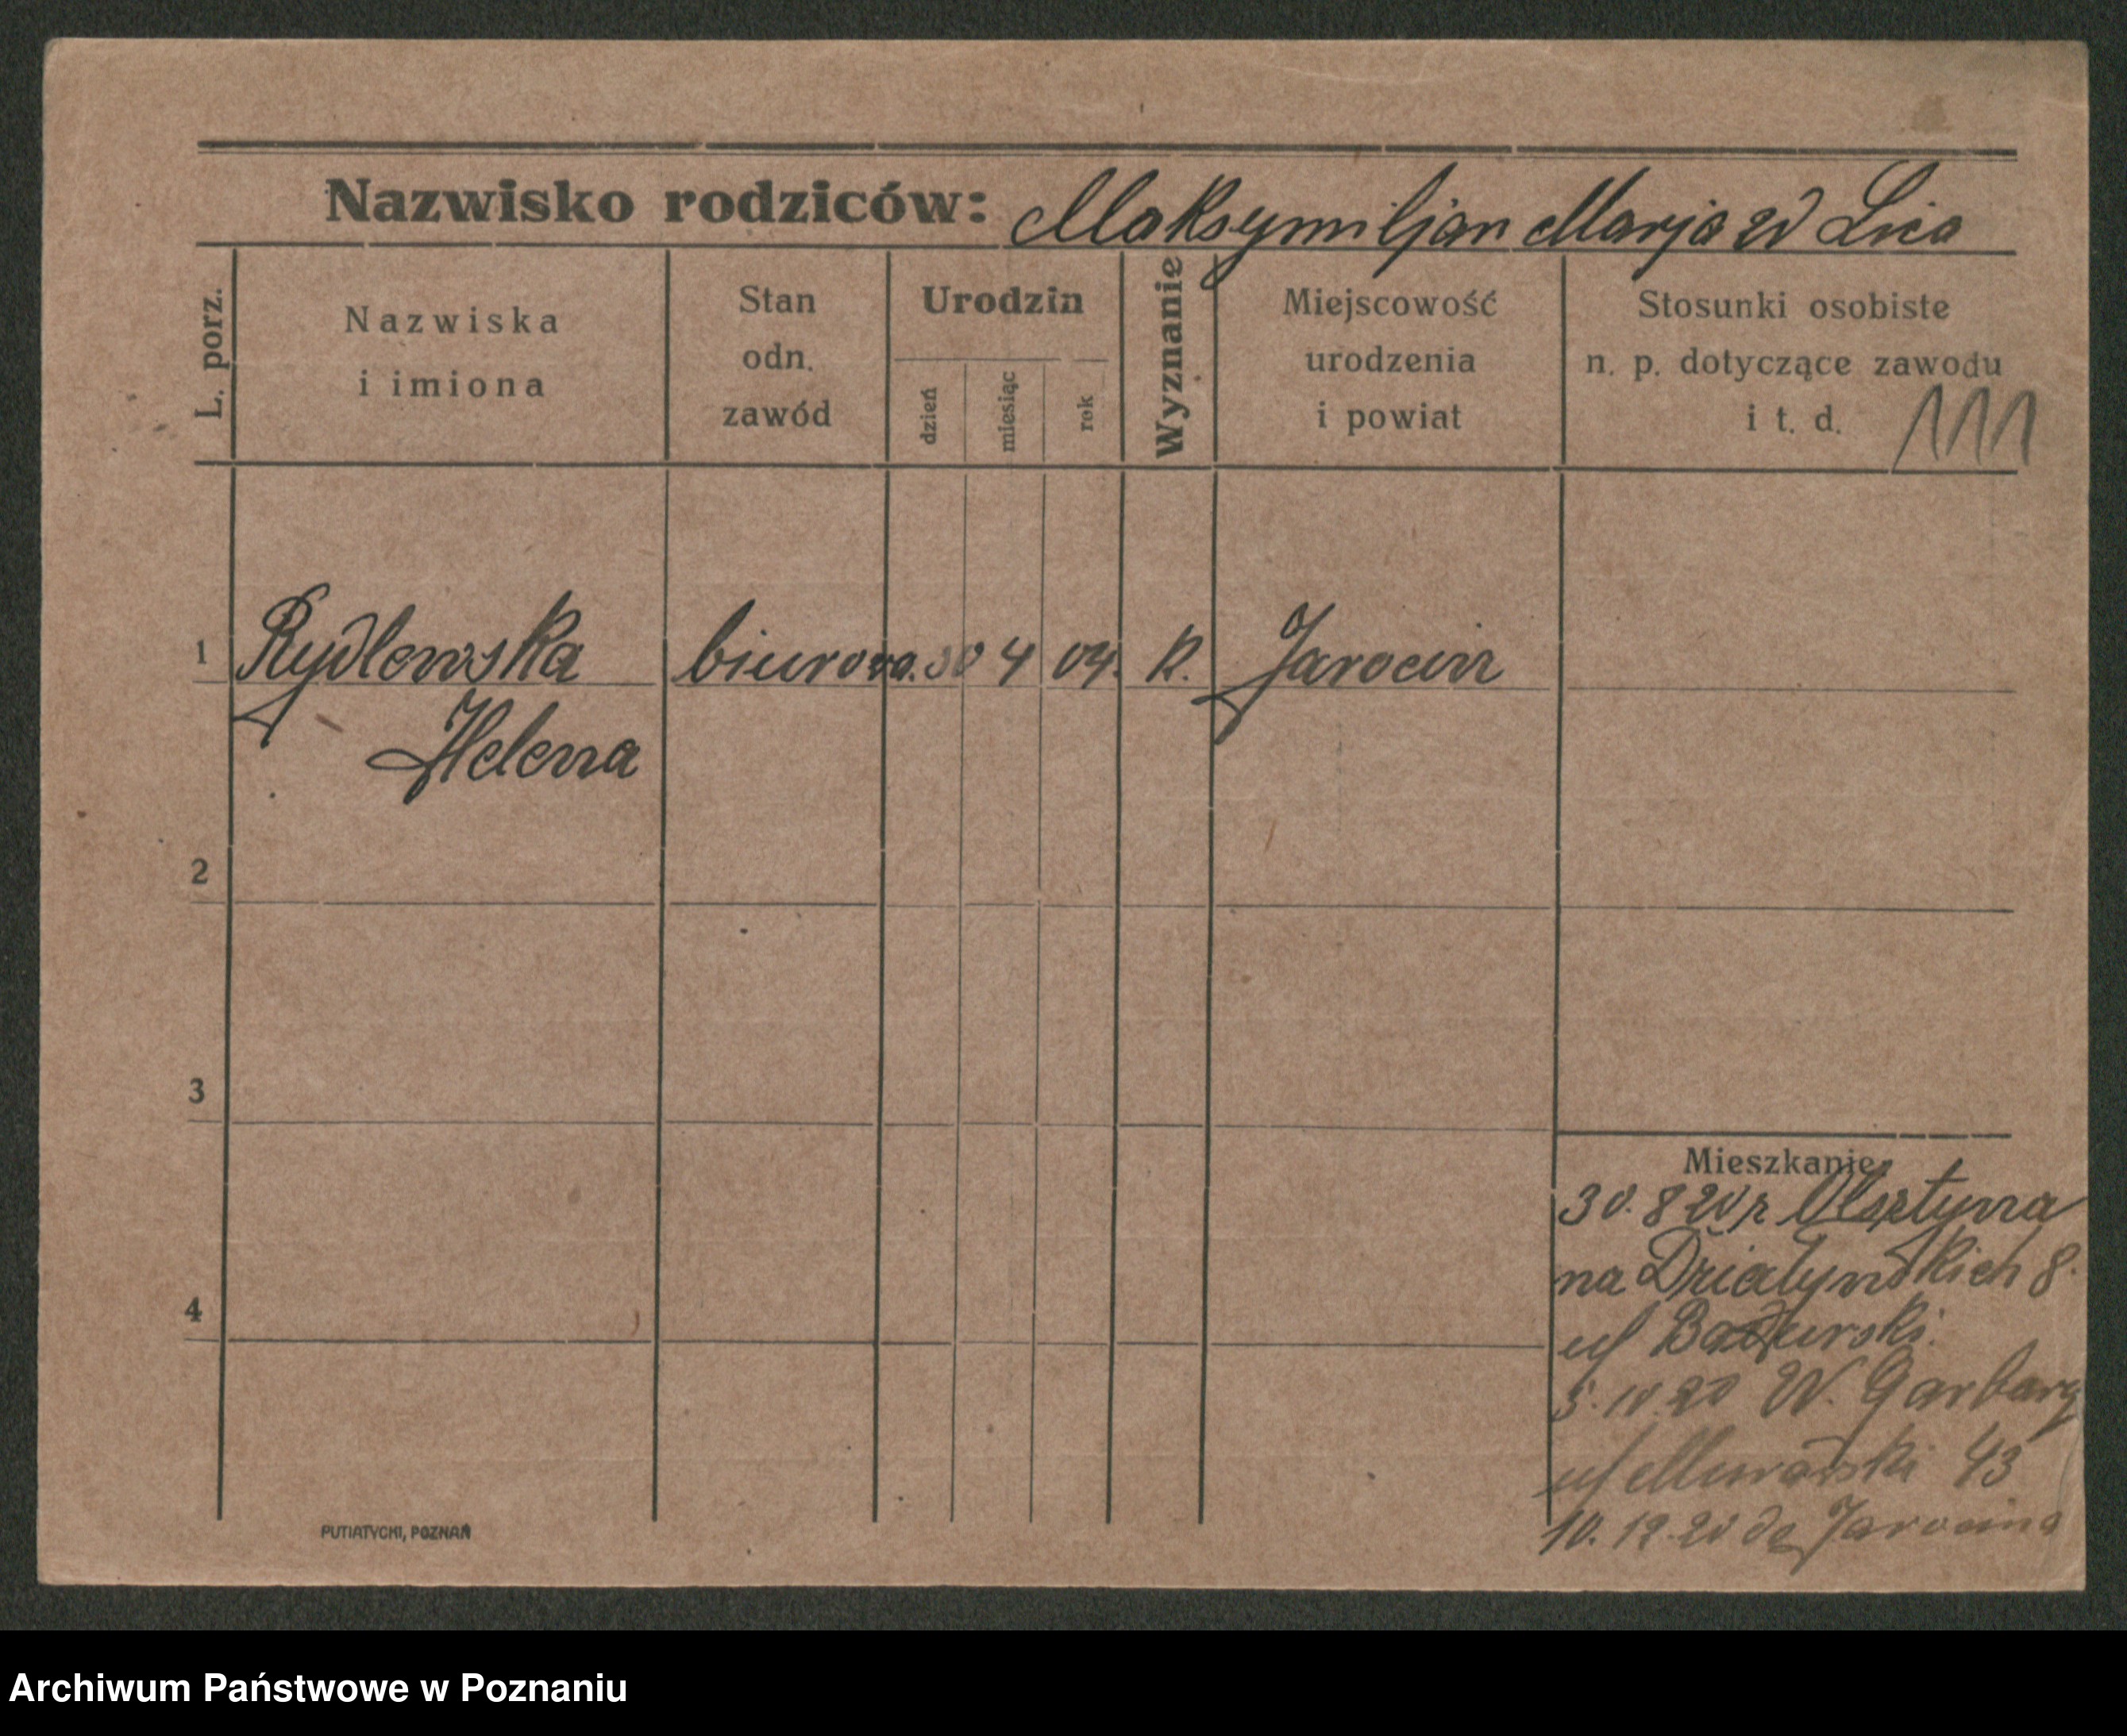 Nazwisko rodziców: Maksymiljan Marja zd Lica
L. porz.
Nazwiska
i imiona
Stan
odn.
zawód
Urodzin
dzień
miesiąc
rok
Wyznanie
Miejscowość
urodzenia
i powiat
Stosunki osobiste
n. p. dotyczące zawodu
i t. d.
111
1 Rydlewska biurowa. 30 4 04. K. Jarocin
Helena
2
3
4
Mieszkanie
30. 8 20 z Olsztyna
na Działyńskich 8.
u/
20 W. Garbary
u/ 43
10. 12. 20 do Jarocina
PUTIATYCKI, POZNAŃ
Archiwum Państwowe w Poznaniu